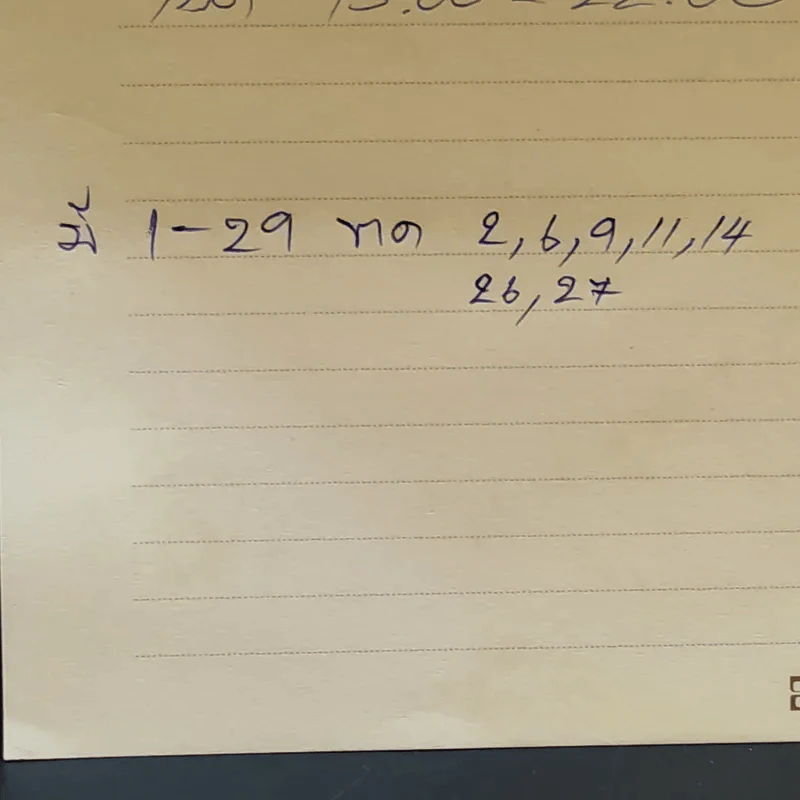 15.00 - 22.00
มี 1-29 ขาด 2, 6, 9, 11, 14
26, 27